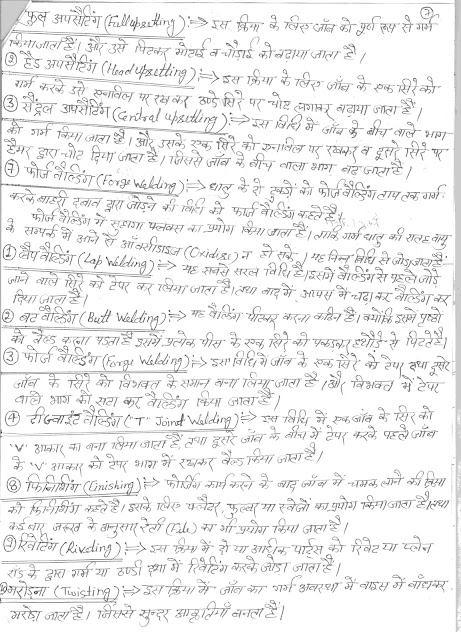 7
① फुल अपसैटिंग (Full upsetting) ⇒ इस क्रिया के लिए जॉब को पूर्ण रूप से गर्म
किया जाता है। और उसे पिटकर मोटाई व चौड़ाई को बढाया जाता है।
② हैड अपसैटिंग (Head Upsetting) ⇒ इस क्रिया के लिए जॉब के एक सिरे को
गर्म करके उसे एनाविल पर रखकर ठण्डे सिरे पर चोट लगाकर बढाया जाता है।
③ सेंट्रल अपसैटिंग (Central upsetting) ⇒ इस विधि में जॉब के बीच वाले भाग
को गर्म किया जाता है। और उसके एक सिरे को एनाविल पर रखकर व दूसरे सिरे पर
हैमर द्वारा चोट दिया जाता है। जिससे जॉब के बीच वाला भाग बढ जाता है।
⑦ फोर्ज वैल्डिंग (Forge Welding) ⇒ धातु के दो टुकड़ों को फोर्ज वैल्डिंग ताप तक गर्म
करके बाहरी दबाव द्वारा जोड़ने की विधि को फोर्ज वैल्डिंग कहते हैं।
फोर्ज वैल्डिंग में सुहागा फ्लक्स का प्रयोग किया जाता है। ताकि गर्म धातु की सतह वायु
के सम्पर्क में आने से ऑक्सीडाइज (Oxidise) न हो सके। यह निम्न विधि से जोड़ा जाता है:
① लैप वैल्डिंग (Lap Welding) ⇒ यह सबसे सरल विधि है। इसमें वैल्डिंग से पहले जोड़े
जाने वाले सिरे को टेपर कर लिया जाता है। तथा बाद में आपस में चढाकर वैल्डिंग कर
दिया जाता है।
② बट वैल्डिंग (Butt Welding) ⇒ यह वैल्डिंग पीटकर करना कठिन है। क्योंकि इसमें पृष्ठों
को वैल्ड करना पड़ता है इसमें प्रत्येक पीस के एक सिरे को पकड़कर हथौड़े से पिटते हैं।
③ फोर्ज वैल्डिंग (Forge Welding) ⇒ इस विधि में जॉब के एक सिरे को टेपर तथा दूसरे
जॉब के सिरे को विभक्त के समान बना लिया जाता है। और विभक्त में टेपर
वाले भाग को सटाकर वैल्डिंग किया जाता है।
④ टी ज्वाइंट वैल्डिंग ("T" Joint Welding) ⇒ इस विधि में एक जॉब के सिरे को
"V" आकार का बना लिया जाता है, तथा दूसरे जॉब के बीच में टेपर करके पहले जॉब
के "V" आकार को टेपर भाग में रखकर वैल्ड किया जाता है।
⑧ फिनिशिंग (Finishing) ⇒ फोर्जिंग कार्य करने के बाद जॉब में चमक लाने की क्रिया
को फिनिशिंग कहते हैं। इसके लिए फ्लैटर, फुलर या स्वेजों का प्रयोग किया जाता है। तथा
कई बार जरूरत के अनुसार रेती (File) का भी प्रयोग किया जाता है।
⑨ रिवेटिंग (Riveting) ⇒ इस क्रिया में दो या अधिक पार्ट्स को रिवेट या प्लेन
रॉड के द्वारा गर्म या ठण्डी दशा में रिवेटिंग करके जोड़ा जाता है।
⑩ मरोड़ना (Twisting) ⇒ इस क्रिया में जॉब का गर्म अवस्था में वाइस में बाँधकर
मरोड़ा जाता है। जिससे सुन्दर आकृतियाँ बनता है।